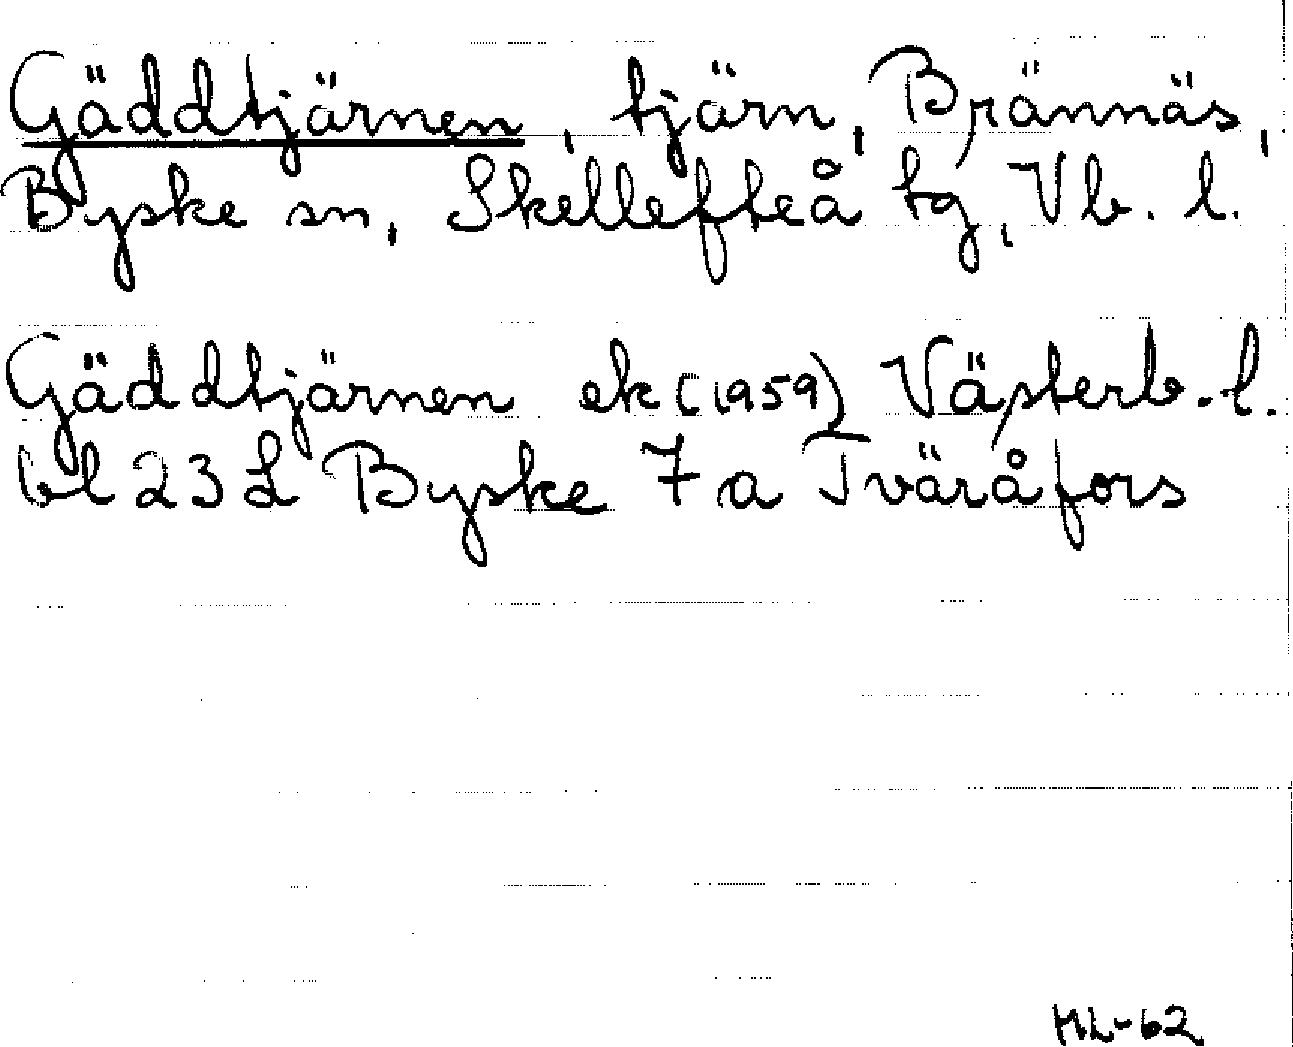 Gäddtjärnen, tjärn, Brännäs,
Byske sn, Skellefteå tg, Vb. l.
Gäddtjärnen ek (1959) Västerb. l.
bl 23 L Byske 7 a Tväråfors
ML-62